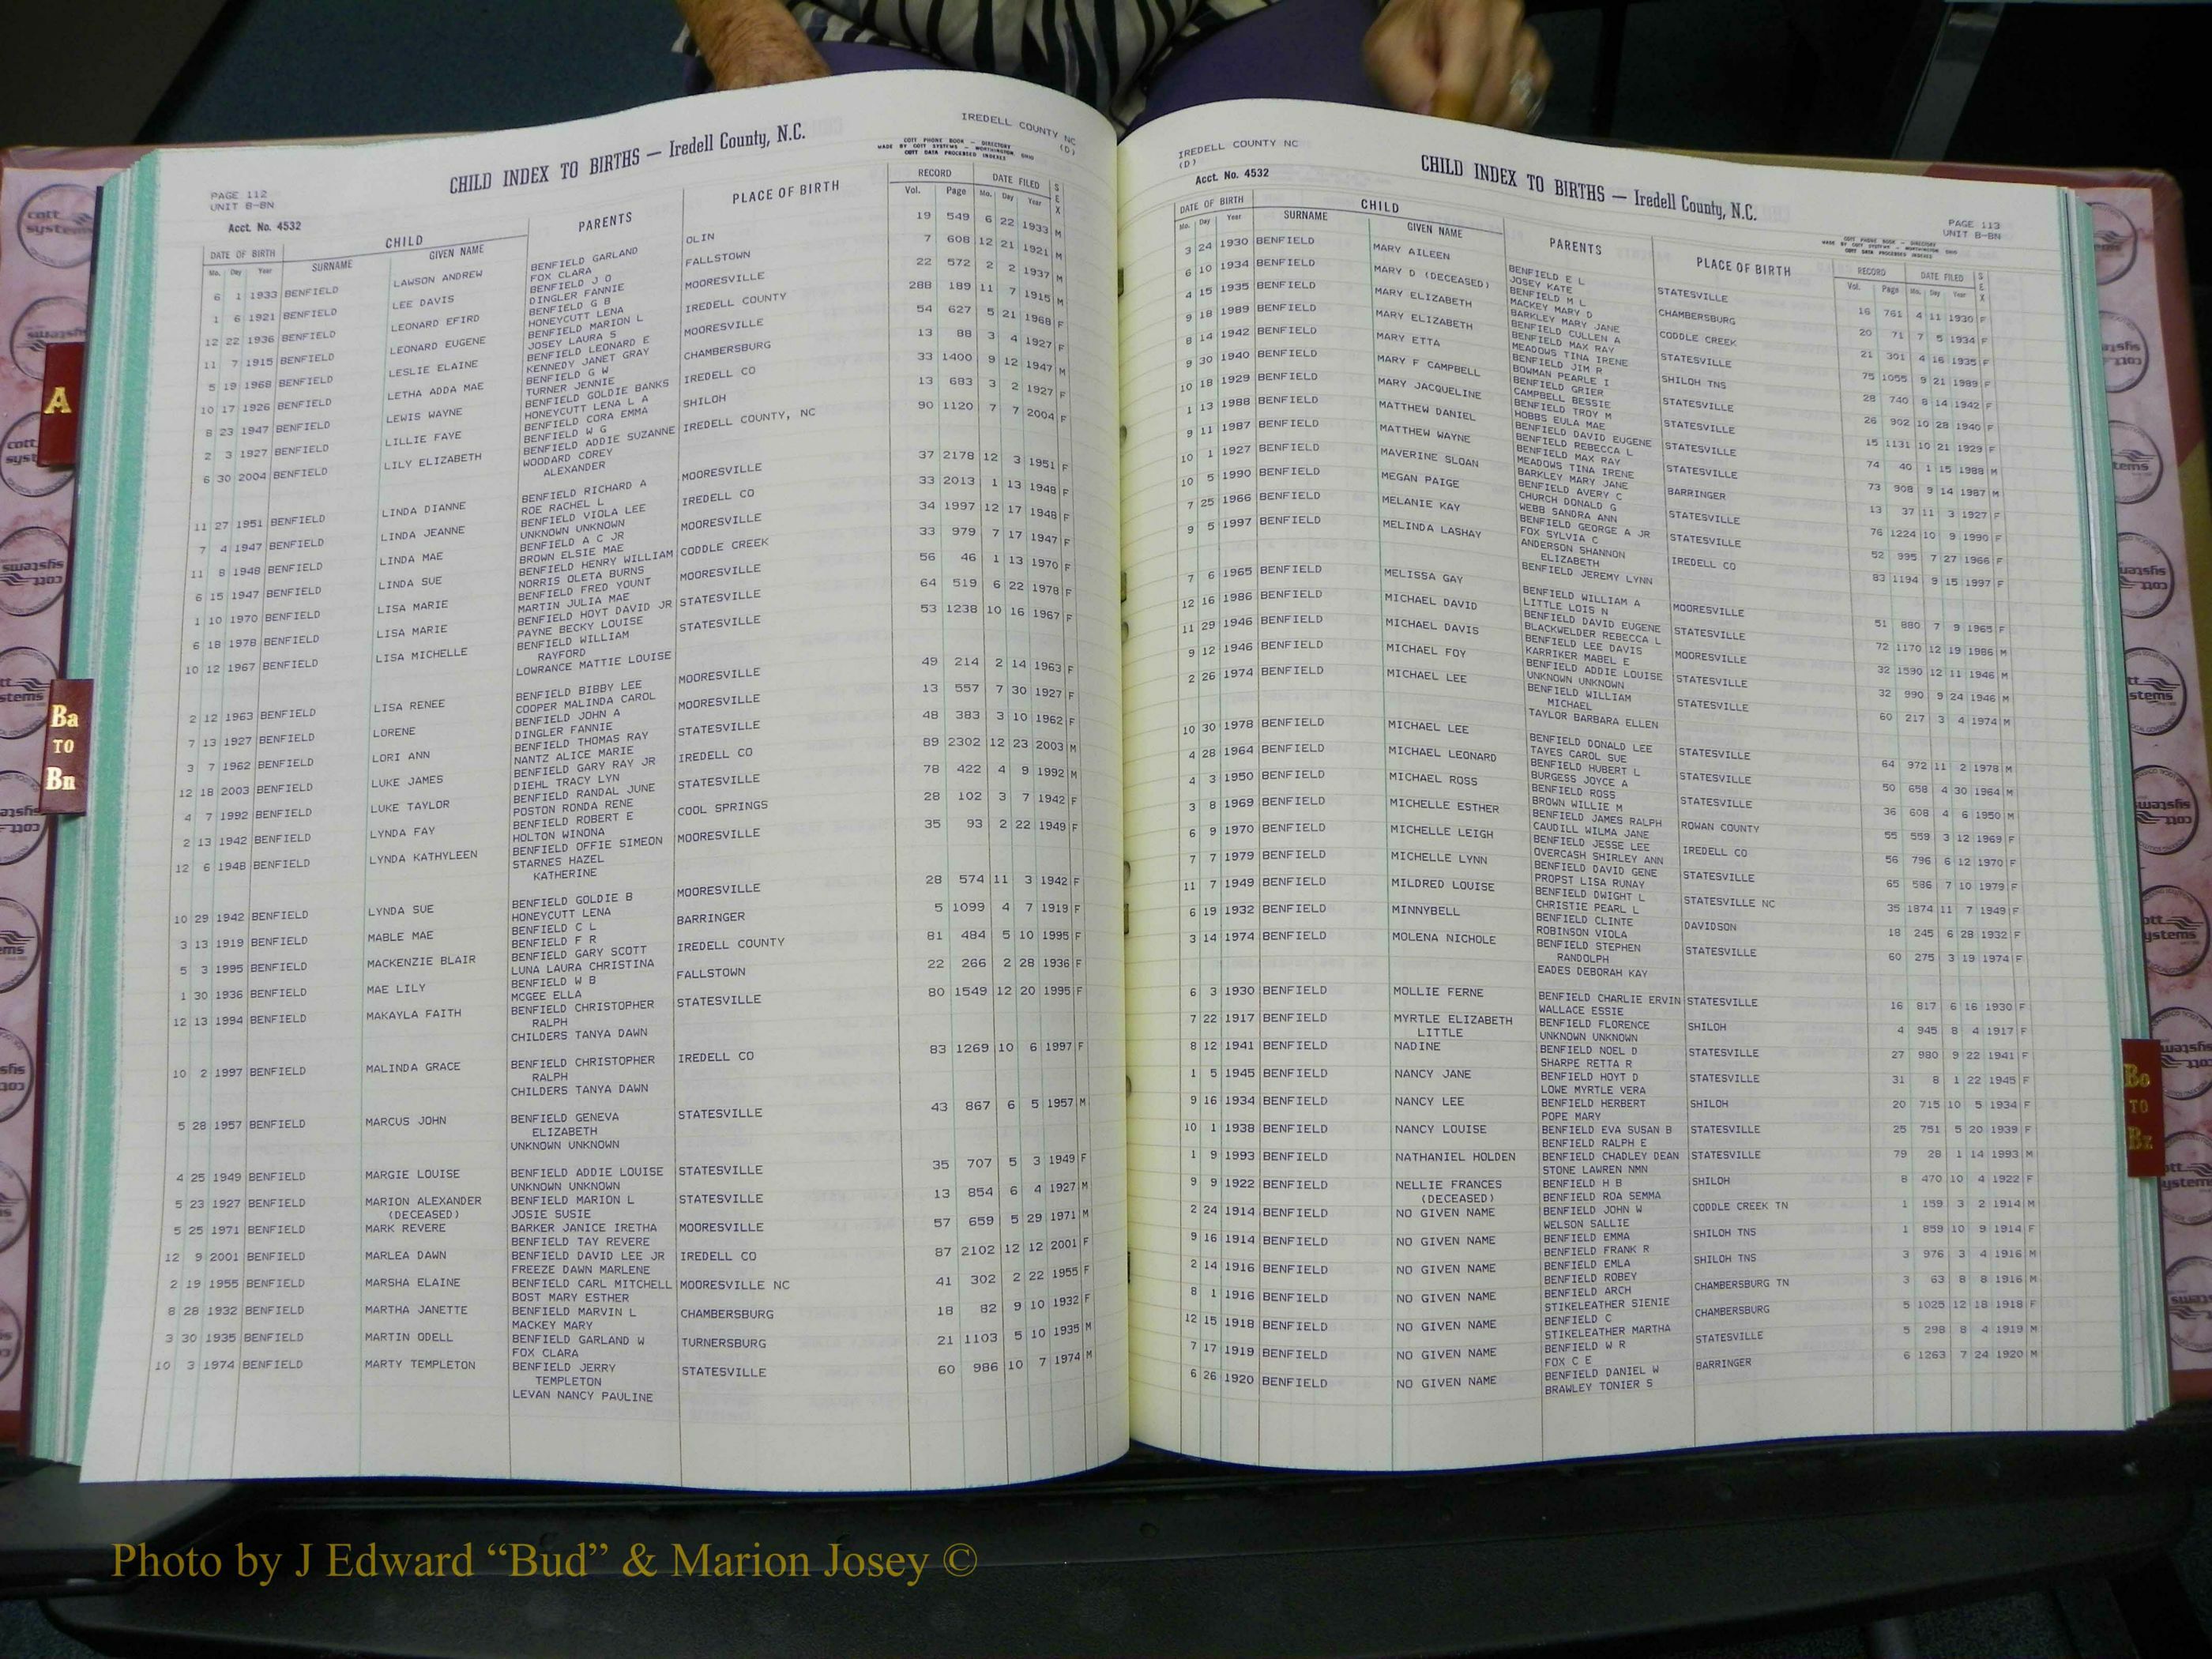 IREDELL COUNTY NC
(D)
CHILD INDEX TO BIRTHS — Iredell County, N.C.
COTT PHONE BOOK - DIRECTORY
MADE BY COTT SYSTEMS - WORTHINGTON, OHIO
COTT DATA PROCESSED INDEXES
PAGE 112
UNIT B-BN
Acct. No. 4532
DATE OF BIRTH CHILD PARENTS PLACE OF BIRTH RECORD DATE FILED SEX
Mo. Day Year SURNAME GIVEN NAME Vol. Page Mo. Day Year
6 1 1933 BENFIELD LAWSON ANDREW BENFIELD GARLAND OLIN 19 549 6 22 1933 M
FOX CLARA
1 6 1921 BENFIELD LEE DAVIS BENFIELD J O FALLSTOWN 7 608 12 21 1921 M
DINGLER FANNIE
12 22 1936 BENFIELD LEONARD EFIRD BENFIELD G B MOORESVILLE 22 572 2 2 1937 M
HONEYCUTT LENA
11 7 1915 BENFIELD LEONARD EUGENE BENFIELD MARION L IREDELL COUNTY 28B 189 11 7 1915 M
JOSEY LAURA S
5 19 1968 BENFIELD LESLIE ELAINE BENFIELD LEONARD E MOORESVILLE 54 627 5 21 1968 F
KENNEDY JANET GRAY
10 17 1926 BENFIELD LETHA ADDA MAE BENFIELD G W CHAMBERSBURG 13 88 3 4 1927 F
TURNER JENNIE
8 23 1947 BENFIELD LEWIS WAYNE BENFIELD GOLDIE BANKS IREDELL CO 33 1400 9 12 1947 M
HONEYCUTT LENA L A
2 3 1927 BENFIELD LILLIE FAYE BENFIELD CORA EMMA SHILOH 13 683 3 2 1927 F
BENFIELD W G
6 30 2004 BENFIELD LILY ELIZABETH BENFIELD ADDIE SUZANNE IREDELL COUNTY, NC 90 1120 7 7 2004 F
WOODARD COREY
ALEXANDER
11 27 1951 BENFIELD LINDA DIANNE BENFIELD RICHARD A MOORESVILLE 37 2178 12 3 1951 F
ROE RACHEL L
7 4 1947 BENFIELD LINDA JEANNE BENFIELD VIOLA LEE IREDELL CO 33 2013 1 13 1948 F
UNKNOWN UNKNOWN
11 8 1948 BENFIELD LINDA MAE BENFIELD A C JR MOORESVILLE 34 1997 12 17 1948 F
BROWN ELSIE MAE
6 15 1947 BENFIELD LINDA SUE BENFIELD HENRY WILLIAM CODDLE CREEK 33 979 7 17 1947 F
NORRIS OLETA BURNS
1 10 1970 BENFIELD LISA MARIE BENFIELD FRED YOUNT MOORESVILLE 56 46 1 13 1970 F
MARTIN JULIA MAE
6 18 1978 BENFIELD LISA MARIE BENFIELD HOYT DAVID JR STATESVILLE 64 519 6 22 1978 F
PAYNE BECKY LOUISE
10 12 1967 BENFIELD LISA MICHELLE BENFIELD WILLIAM STATESVILLE 53 1238 10 16 1967 F
RAYFORD
LOWRANCE MATTIE LOUISE
2 12 1963 BENFIELD LISA RENEE BENFIELD BIBBY LEE MOORESVILLE 49 214 2 14 1963 F
COOPER MALINDA CAROL
7 13 1927 BENFIELD LORENE BENFIELD JOHN A MOORESVILLE 13 557 7 30 1927 F
DINGLER FANNIE
3 7 1962 BENFIELD LORI ANN BENFIELD THOMAS RAY STATESVILLE 48 383 3 10 1962 F
NANTZ ALICE MARIE
12 18 2003 BENFIELD LUKE JAMES BENFIELD GARY RAY JR IREDELL CO 89 2302 12 23 2003 M
DIEHL TRACY LYN
4 7 1992 BENFIELD LUKE TAYLOR BENFIELD RANDAL JUNE STATESVILLE 78 422 4 9 1992 M
POSTON RONDA RENE
2 13 1942 BENFIELD LYNDA FAY BENFIELD ROBERT E COOL SPRINGS 28 102 3 7 1942 F
HOLTON WINONA
12 6 1948 BENFIELD LYNDA KATHYLEEN BENFIELD OFFIE SIMEON MOORESVILLE 35 93 2 22 1949 F
STARNES HAZEL
KATHERINE
10 29 1942 BENFIELD LYNDA SUE BENFIELD GOLDIE B MOORESVILLE 28 574 11 3 1942 F
HONEYCUTT LENA
3 13 1919 BENFIELD MABLE MAE BENFIELD C L BARRINGER 5 1099 4 7 1919 F
BENFIELD F R
5 3 1995 BENFIELD MACKENZIE BLAIR BENFIELD GARY SCOTT IREDELL COUNTY 81 484 5 10 1995 F
LUNA LAURA CHRISTINA
1 30 1936 BENFIELD MAE LILY BENFIELD W B FALLSTOWN 22 266 2 28 1936 F
MCGEE ELLA
12 13 1994 BENFIELD MAKAYLA FAITH BENFIELD CHRISTOPHER STATESVILLE 80 1549 12 20 1995 F
RALPH
CHILDERS TANYA DAWN
10 2 1997 BENFIELD MALINDA GRACE BENFIELD CHRISTOPHER IREDELL CO 83 1269 10 6 1997 F
RALPH
CHILDERS TANYA DAWN
5 28 1957 BENFIELD MARCUS JOHN BENFIELD GENEVA STATESVILLE 43 867 6 5 1957 M
ELIZABETH
UNKNOWN UNKNOWN
4 25 1949 BENFIELD MARGIE LOUISE BENFIELD ADDIE LOUISE STATESVILLE 35 707 5 3 1949 F
UNKNOWN UNKNOWN
5 23 1927 BENFIELD MARION ALEXANDER BENFIELD MARION L STATESVILLE 13 854 6 4 1927 M
(DECEASED) JOSIE SUSIE
5 25 1971 BENFIELD MARK REVERE BARKER JANICE IRETHA MOORESVILLE 57 659 5 29 1971 M
BENFIELD TAY REVERE
12 9 2001 BENFIELD MARLEA DAWN BENFIELD DAVID LEE JR IREDELL CO 87 2102 12 12 2001 F
FREEZE DAWN MARLENE
2 19 1955 BENFIELD MARSHA ELAINE BENFIELD CARL MITCHELL MOORESVILLE NC 41 302 2 22 1955 F
BOST MARY ESTHER
8 28 1932 BENFIELD MARTHA JANETTE BENFIELD MARVIN L CHAMBERSBURG 18 82 9 10 1932 F
MACKEY MARY
3 30 1935 BENFIELD MARTIN ODELL BENFIELD GARLAND W TURNERSBURG 21 1103 5 10 1935 M
FOX CLARA
10 3 1974 BENFIELD MARTY TEMPLETON BENFIELD JERRY STATESVILLE 60 986 10 7 1974 M
TEMPLETON
LEVAN NANCY PAULINE
IREDELL COUNTY NC
(D)
Acct. No. 4532
CHILD INDEX TO BIRTHS — Iredell County, N.C.
PAGE 113
UNIT B-BN
COTT PHONE BOOK - DIRECTORY
MADE BY COTT SYSTEMS - WORTHINGTON, OHIO
COTT DATA PROCESSED INDEXES
DATE OF BIRTH CHILD PARENTS PLACE OF BIRTH RECORD DATE FILED SEX
Mo. Day Year SURNAME GIVEN NAME Vol. Page Mo. Day Year
3 24 1930 BENFIELD MARY AILEEN BENFIELD E L STATESVILLE 16 761 4 11 1930 F
JOSEY KATE
6 10 1934 BENFIELD MARY D (DECEASED) BENFIELD M L CHAMBERSBURG 20 71 7 5 1934 F
MACKEY MARY D
4 15 1935 BENFIELD MARY ELIZABETH BARKLEY MARY JANE CODDLE CREEK 21 301 4 16 1935 F
BENFIELD CULLEN A
9 18 1989 BENFIELD MARY ELIZABETH BENFIELD MAX RAY STATESVILLE 75 1055 9 21 1989 F
MEADOWS TINA IRENE
8 14 1942 BENFIELD MARY ETTA BENFIELD JIM R SHILOH TNS 28 740 8 14 1942 F
BOWMAN PEARLE I
9 30 1940 BENFIELD MARY F CAMPBELL BENFIELD GRIER STATESVILLE 26 902 10 28 1940 F
CAMPBELL BESSIE
10 18 1929 BENFIELD MARY JACQUELINE BENFIELD TROY M STATESVILLE 15 1131 10 21 1929 F
HOBBS EULA MAE
1 13 1988 BENFIELD MATTHEW DANIEL BENFIELD DAVID EUGENE STATESVILLE 74 40 1 15 1988 M
BENFIELD REBECCA L
9 11 1987 BENFIELD MATTHEW WAYNE BENFIELD MAX RAY STATESVILLE 73 908 9 14 1987 M
MEADOWS TINA IRENE
10 1 1927 BENFIELD MAVERINE SLOAN BARKLEY MARY JANE BARRINGER 13 37 11 3 1927 F
BENFIELD AVERY C
10 5 1990 BENFIELD MEGAN PAIGE CHURCH DONALD G STATESVILLE 76 1224 10 9 1990 F
WEBB SANDRA ANN
7 25 1966 BENFIELD MELANIE KAY BENFIELD GEORGE A JR STATESVILLE 52 995 7 27 1966 F
FOX SYLVIA C
9 5 1997 BENFIELD MELINDA LASHAY ANDERSON SHANNON IREDELL CO 83 1194 9 15 1997 F
ELIZABETH
BENFIELD JEREMY LYNN
7 6 1965 BENFIELD MELISSA GAY BENFIELD WILLIAM A MOORESVILLE 51 880 7 9 1965 F
LITTLE LOIS N
12 16 1986 BENFIELD MICHAEL DAVID BENFIELD DAVID EUGENE STATESVILLE 72 1170 12 19 1986 M
BLACKWELDER REBECCA L
11 29 1946 BENFIELD MICHAEL DAVIS BENFIELD LEE DAVIS MOORESVILLE 32 1590 12 11 1946 M
KARRIKER MABEL E
9 12 1946 BENFIELD MICHAEL FOY BENFIELD ADDIE LOUISE STATESVILLE 32 990 9 24 1946 M
UNKNOWN UNKNOWN
2 26 1974 BENFIELD MICHAEL LEE BENFIELD WILLIAM STATESVILLE 60 217 3 4 1974 M
MICHAEL
TAYLOR BARBARA ELLEN
10 30 1978 BENFIELD MICHAEL LEE BENFIELD DONALD LEE STATESVILLE 64 972 11 2 1978 M
TAYES CAROL SUE
4 28 1964 BENFIELD MICHAEL LEONARD BENFIELD HUBERT L STATESVILLE 50 658 4 30 1964 M
BURGESS JOYCE A
4 3 1950 BENFIELD MICHAEL ROSS BENFIELD ROSS STATESVILLE 36 608 4 6 1950 M
BROWN WILLIE M
3 8 1969 BENFIELD MICHELLE ESTHER BENFIELD JAMES RALPH ROWAN COUNTY 55 559 3 12 1969 F
CAUDILL WILMA JANE
6 9 1970 BENFIELD MICHELLE LEIGH BENFIELD JESSE LEE IREDELL CO 56 796 6 12 1970 F
OVERCASH SHIRLEY ANN
7 7 1979 BENFIELD MICHELLE LYNN BENFIELD DAVID GENE STATESVILLE 65 586 7 10 1979 F
PROPST LISA RUNAY
11 7 1949 BENFIELD MILDRED LOUISE BENFIELD DWIGHT L STATESVILLE NC 35 1874 11 7 1949 F
CHRISTIE PEARL L
6 19 1932 BENFIELD MINNYBELL BENFIELD CLINTE DAVIDSON 18 245 6 28 1932 F
ROBINSON VIOLA
3 14 1974 BENFIELD MOLENA NICHOLE BENFIELD STEPHEN STATESVILLE 60 275 3 19 1974 F
RANDOLPH
EADES DEBORAH KAY
6 3 1930 BENFIELD MOLLIE FERNE BENFIELD CHARLIE ERVIN STATESVILLE 16 817 6 16 1930 F
WALLACE ESSIE
7 22 1917 BENFIELD MYRTLE ELIZABETH BENFIELD FLORENCE SHILOH 4 945 8 4 1917 F
LITTLE UNKNOWN UNKNOWN
8 12 1941 BENFIELD NADINE BENFIELD NOEL D STATESVILLE 27 980 9 22 1941 F
SHARPE RETTA R
1 5 1945 BENFIELD NANCY JANE BENFIELD HOYT D STATESVILLE 31 8 1 22 1945 F
LOWE MYRTLE VERA
9 16 1934 BENFIELD NANCY LEE BENFIELD HERBERT SHILOH 20 715 10 5 1934 F
POPE MARY
10 1 1938 BENFIELD NANCY LOUISE BENFIELD EVA SUSAN B STATESVILLE 25 751 5 20 1939 F
BENFIELD RALPH E
1 9 1993 BENFIELD NATHANIEL HOLDEN BENFIELD CHADLEY DEAN STATESVILLE 79 28 1 14 1993 M
STONE LAWREN NMN
9 9 1922 BENFIELD NELLIE FRANCES BENFIELD H B SHILOH 8 470 10 4 1922 F
(DECEASED) BENFIELD ROA SEMMA
2 24 1914 BENFIELD NO GIVEN NAME BENFIELD JOHN W CODDLE CREEK TN 1 159 3 2 1914 M
WELSON SALLIE
9 16 1914 BENFIELD NO GIVEN NAME BENFIELD EMMA SHILOH TNS 1 859 10 9 1914 F
BENFIELD FRANK R
2 14 1916 BENFIELD NO GIVEN NAME BENFIELD EMLA SHILOH TNS 3 976 3 4 1916 M
BENFIELD ROBEY
8 1 1916 BENFIELD NO GIVEN NAME BENFIELD ARCH CHAMBERSBURG TN 3 63 8 8 1916 M
STIKELEATHER SIENIE
12 15 1918 BENFIELD NO GIVEN NAME BENFIELD C CHAMBERSBURG 5 1025 12 18 1918 F
STIKELEATHER MARTHA
7 17 1919 BENFIELD NO GIVEN NAME BENFIELD W R STATESVILLE 5 298 8 4 1919 M
FOX C E
6 26 1920 BENFIELD NO GIVEN NAME BENFIELD DANIEL W BARRINGER 6 1263 7 24 1920 M
BRAWLEY TONIER S
A
Ba
TO
Bn
Bo
TO
Bz
cott
systems
Photo by J Edward “Bud” & Marion Josey ©